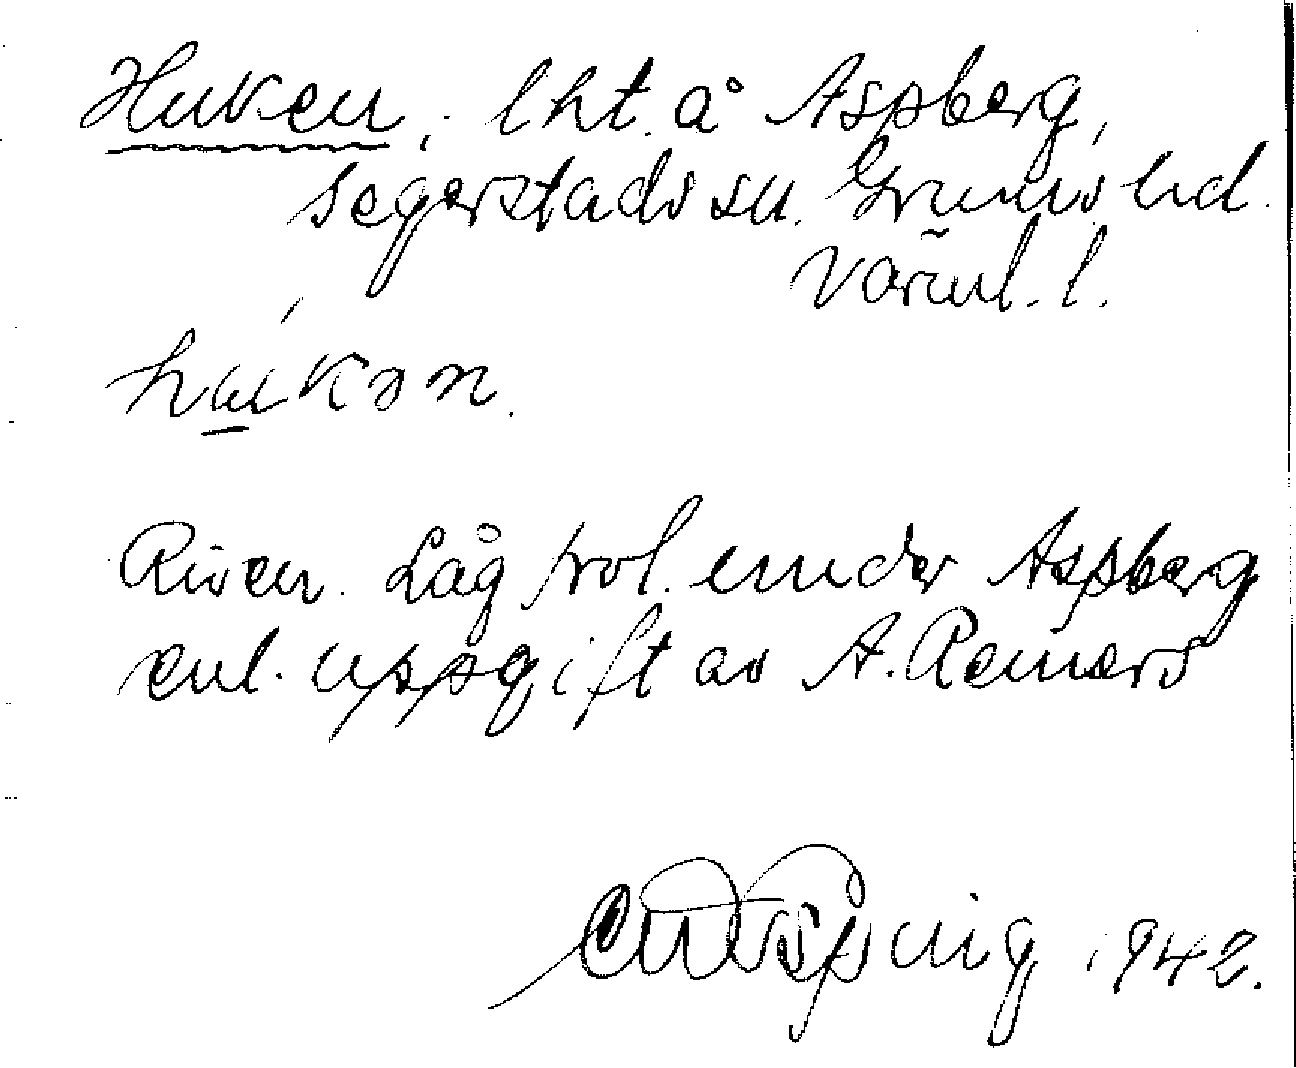 Huken, lht. å Aspberg,
Segerstads sn. Grums hd.
Värml. l.
hukən.
Riven. Låg trol. under Aspberg
enl. uppgift av A. Remers
1942.